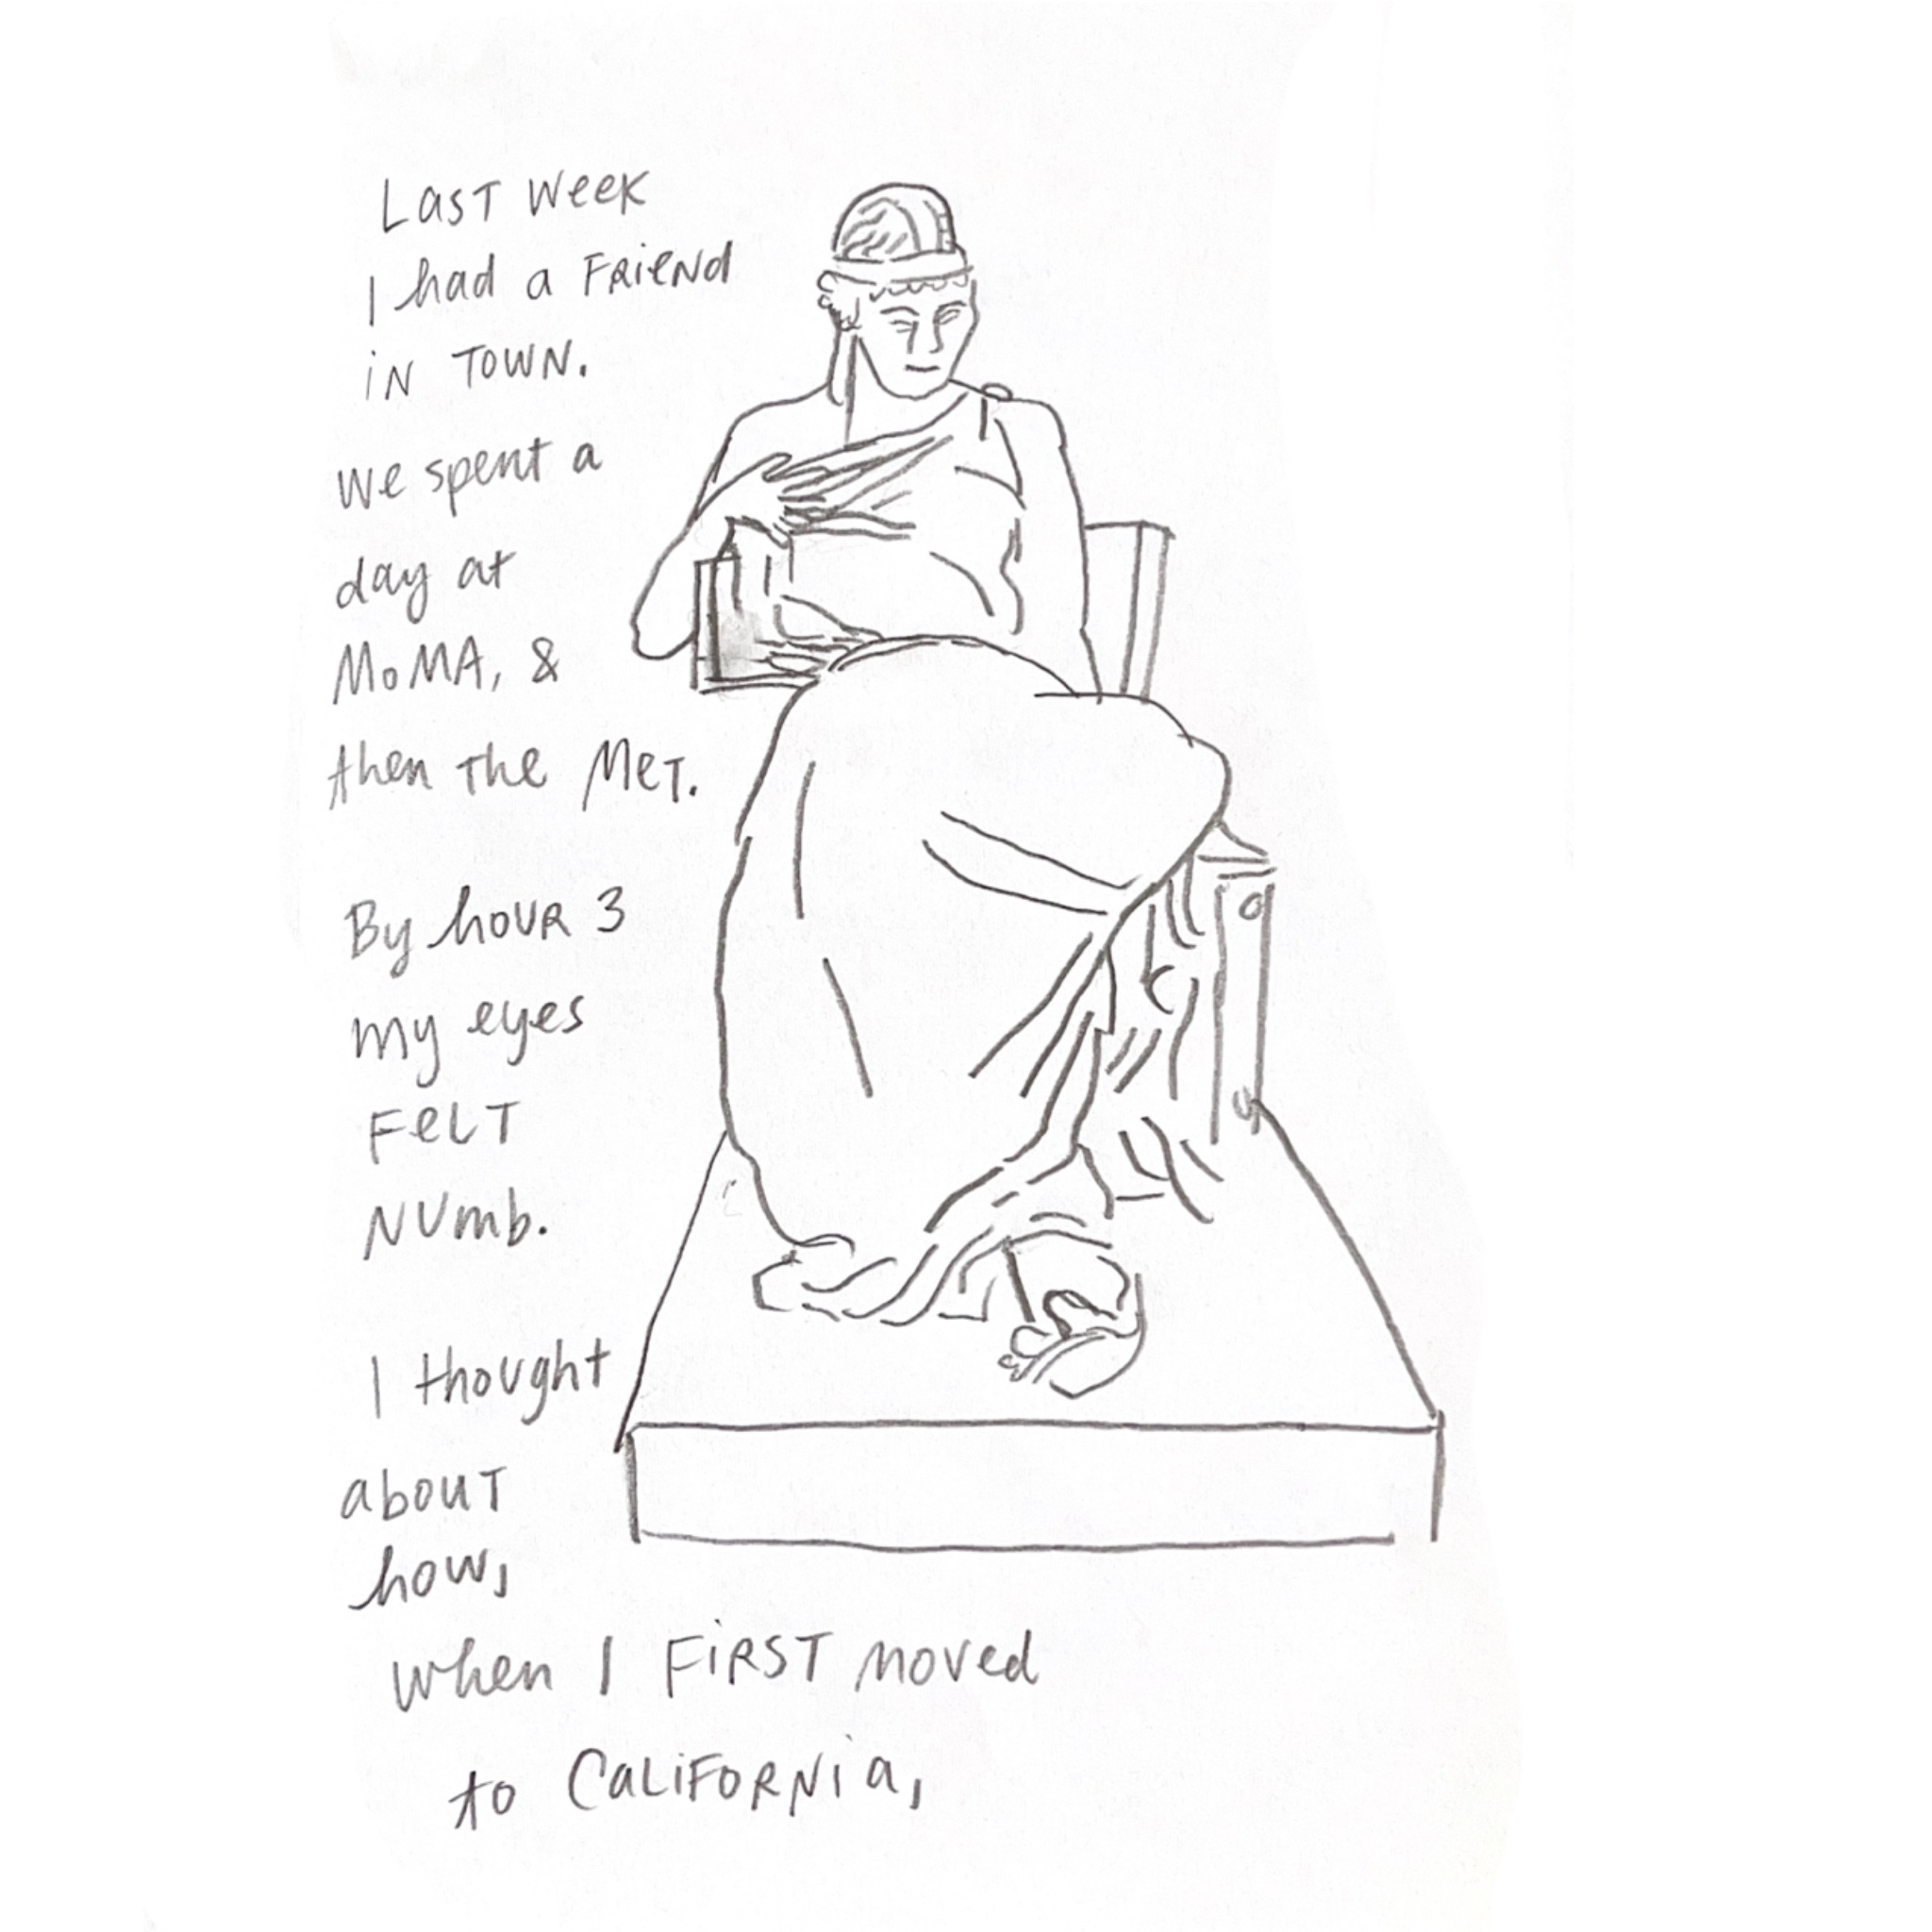 Last week
I had a friend
in town.
we spent a
day at
MoMA, &
then the Met.
By hour 3
my eyes
felt
numb.
I thought
about
how,
when I first moved
to California,